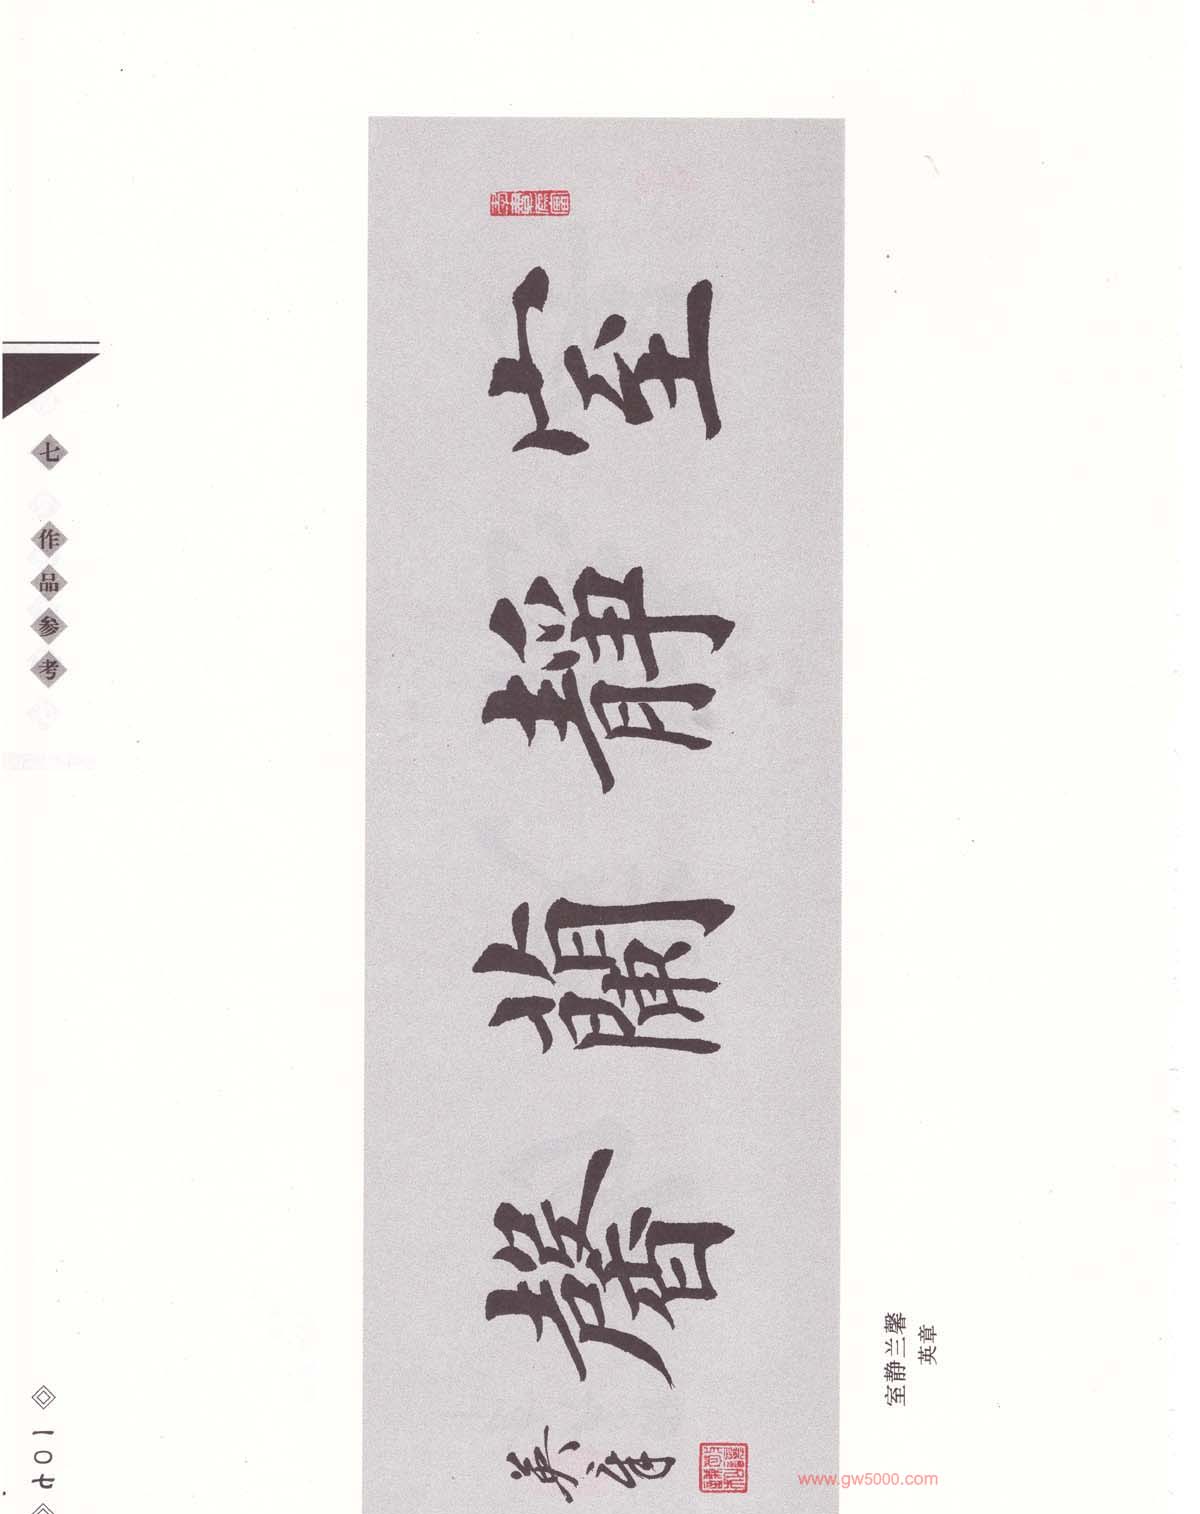 七 作品参考
室靜蘭馨
英章
室静兰馨
英章
一〇七
www.gw5000.com